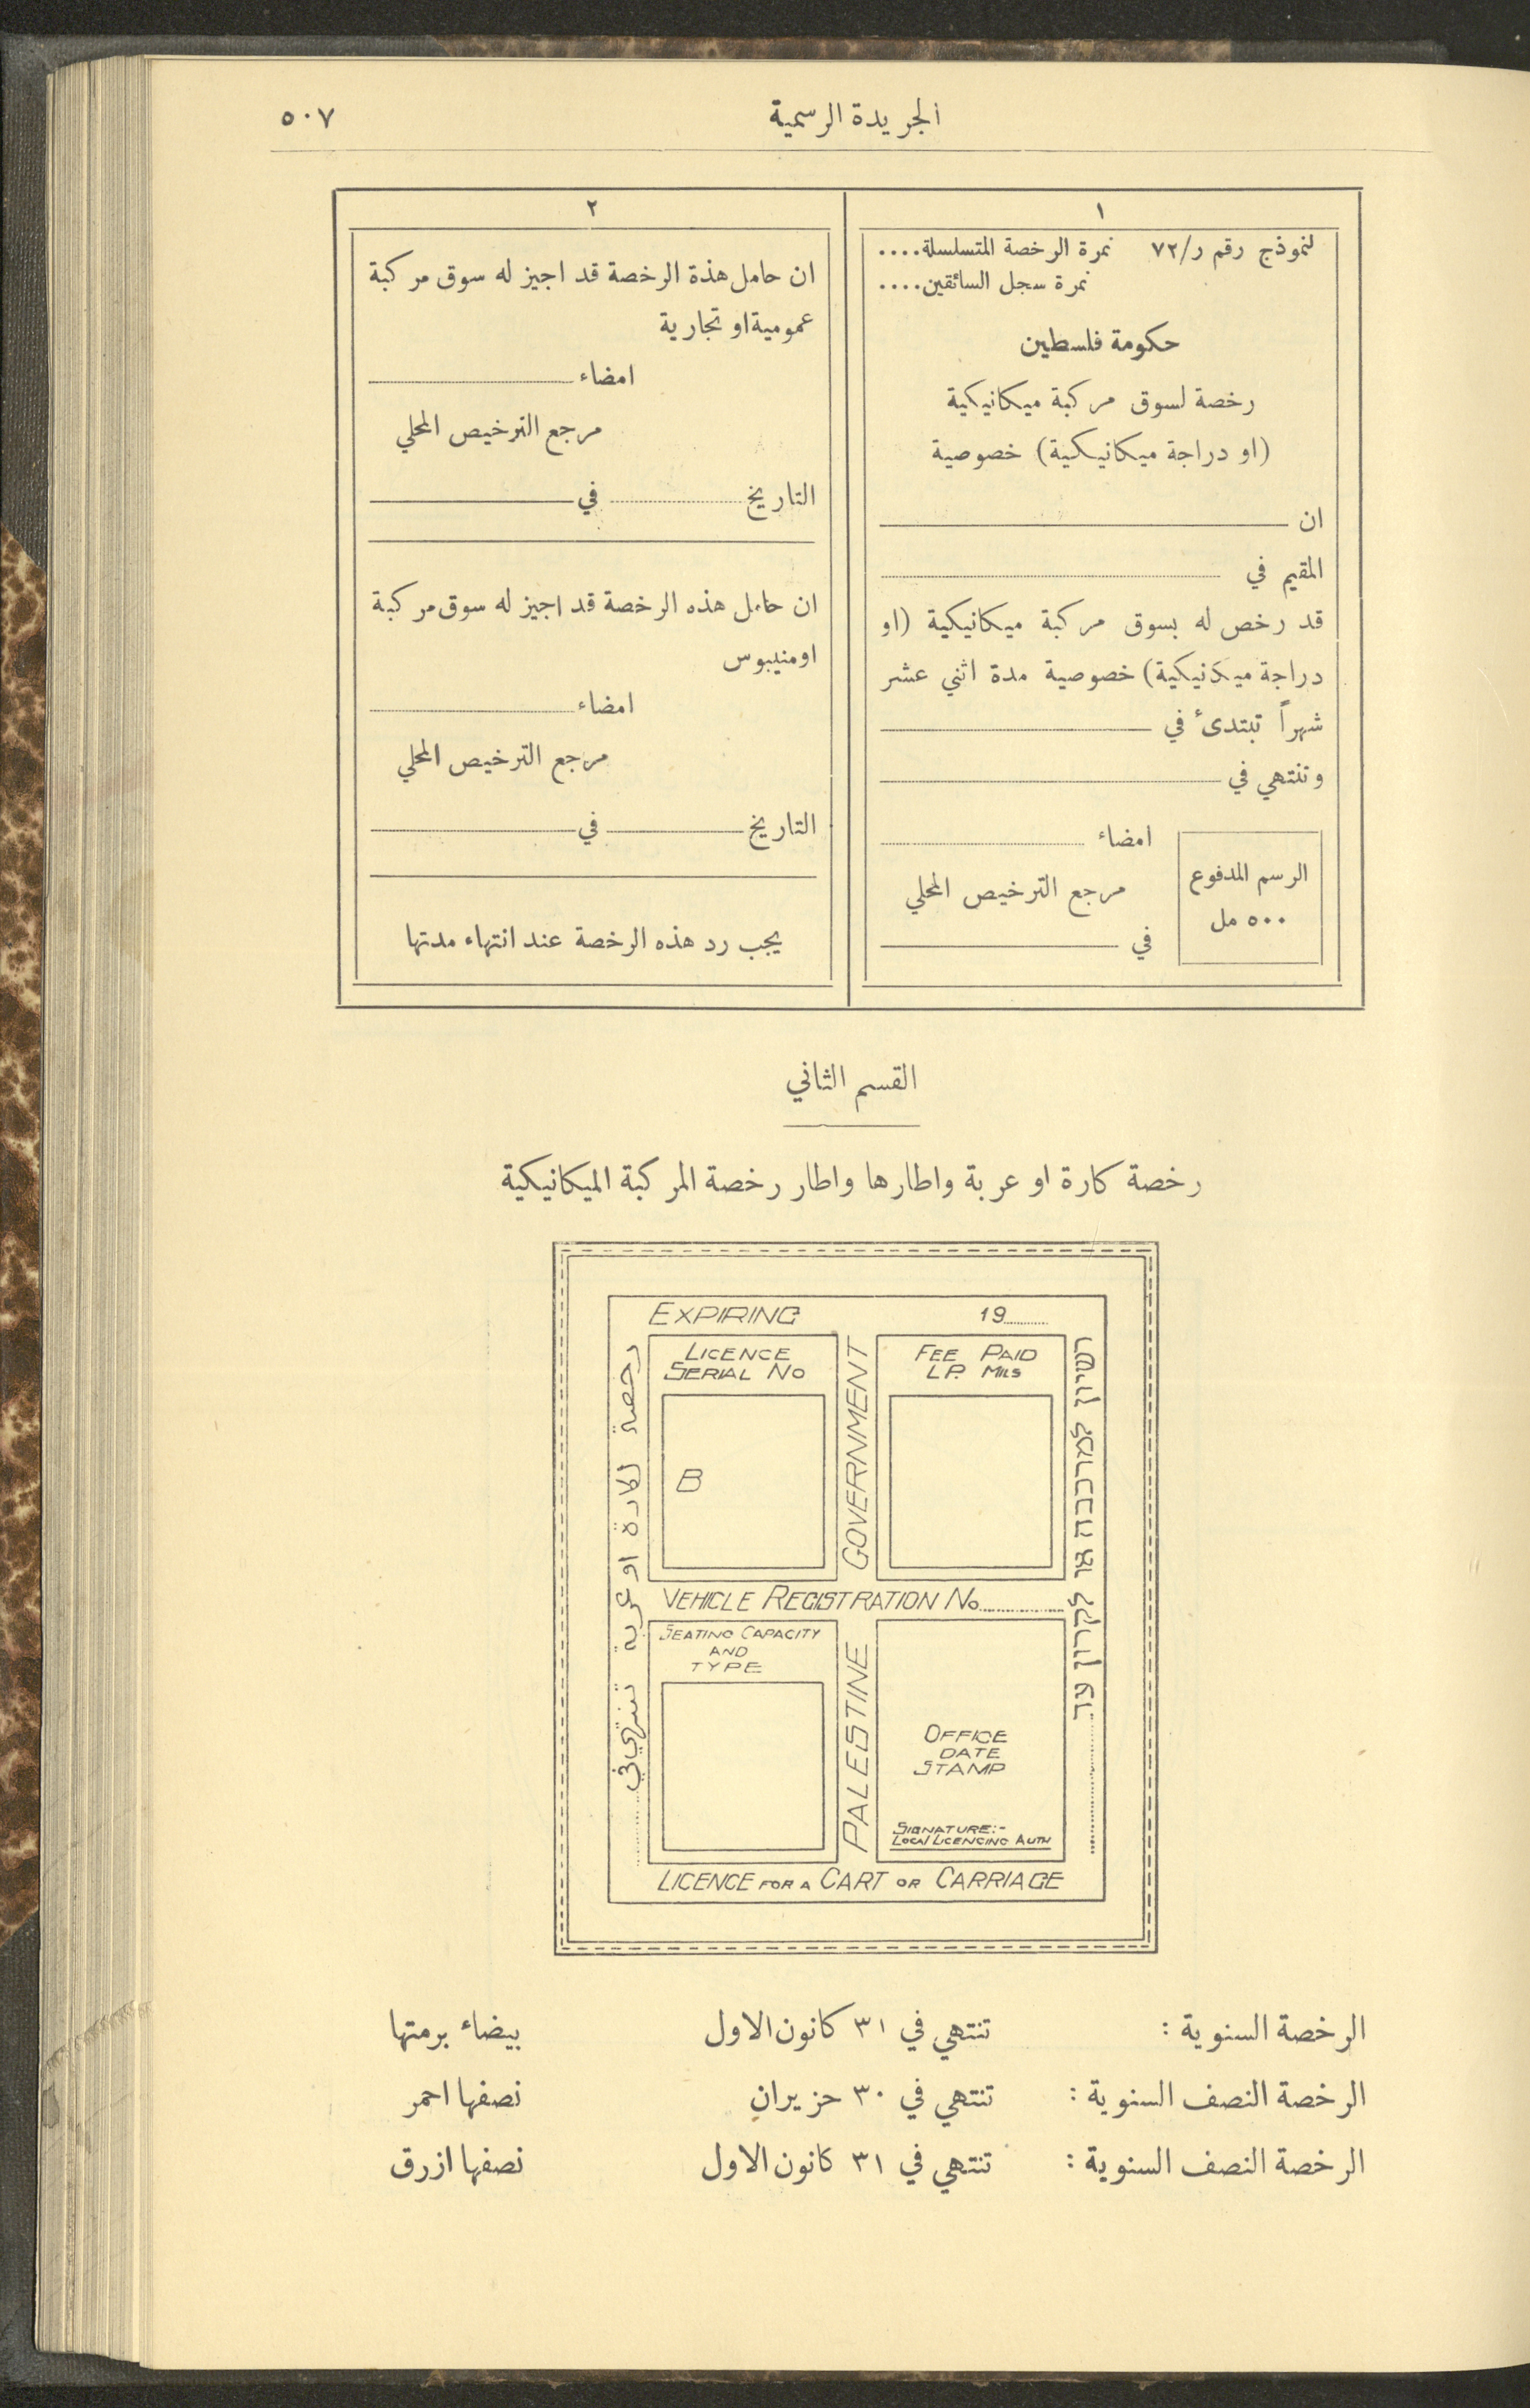 الجريدة الرسمية
٥٠٧
١
نموذج رقم ر/٧٢ نمرة الرخصة المتسلسلة....
نمرة سجل السائقين....
حكومة فلسطين
رخصة لسوق مركبة ميكانيكية
(او دراجة ميكانيكية) خصوصية
ان
المقيم في
قد رخص له بسوق مركبة ميكانيكية (او
دراجة ميكانيكية) خصوصية مدة اثني عشر
شهراً تبتدئ في
وتنتهي في
امضاء
مرجع الترخيص المحلي
في
الرسم المدفوع
٥٠٠ مل
٢
ان حامل هذة الرخصة قد اجيز له سوق مركبة
عمومية او تجارية
امضاء
مرجع الترخيص المحلي
التاريخ في
ان حامل هذه الرخصة قد اجيز له سوق مركبة
اومنيبوس
امضاء
مرجع الترخيص المحلي
التاريخ في
يجب رد هذه الرخصة عند انتهاء مدتها
القسم الثاني
رخصة كارة او عربة واطارها واطار رخصة المركبة الميكانيكية
EXPIRING 19
LICENCE
SERIAL NO
B
GOVERNMENT
FEE PAID
LP. MILS
VEHICLE REGISTRATION No
SEATING CAPACITY
AND
TYPE
PALESTINE
OFFICE
DATE
STAMP
SIGNATURE:-
LOCAL LICENCING AUTH
LICENCE FOR A CART OR CARRIAGE
رخصة لكارة او عربة تنتهي في
רשיון למרכבה או לקרון עד
الرخصة السنوية : تنتهي في ٣١ كانون الاول بيضاء برمتها
الرخصة النصف السنوية : تنتهي في ٣٠ حزيران نصفها احمر
الرخصة النصف السنوية : تنتهي في ٣١ كانون الاول نصفها ازرق